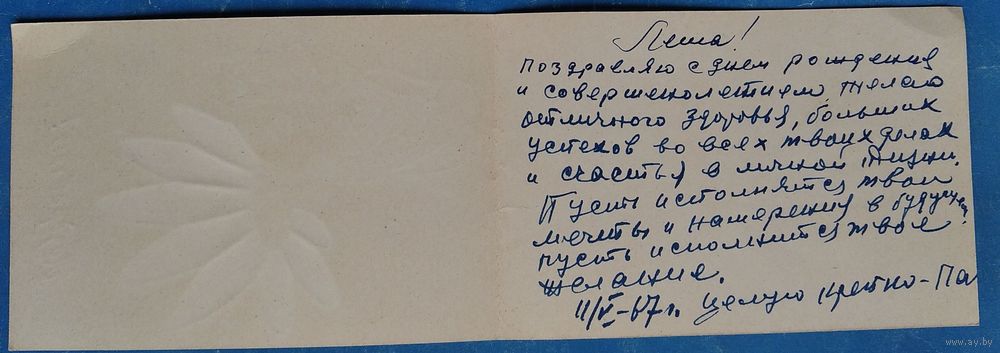 Леша!
Поздравляю с днем рождения
и совершенолетием. Желаю
отличного здоровья, больших
успехов во всех твоих делах
и счастья в личной жизни.
Пусть исполнятся твои
мечты и намерения в будущем.
пусть исполнится твое
желание.
11/VI-67 г. Целую крепко - Па
www.ay.by